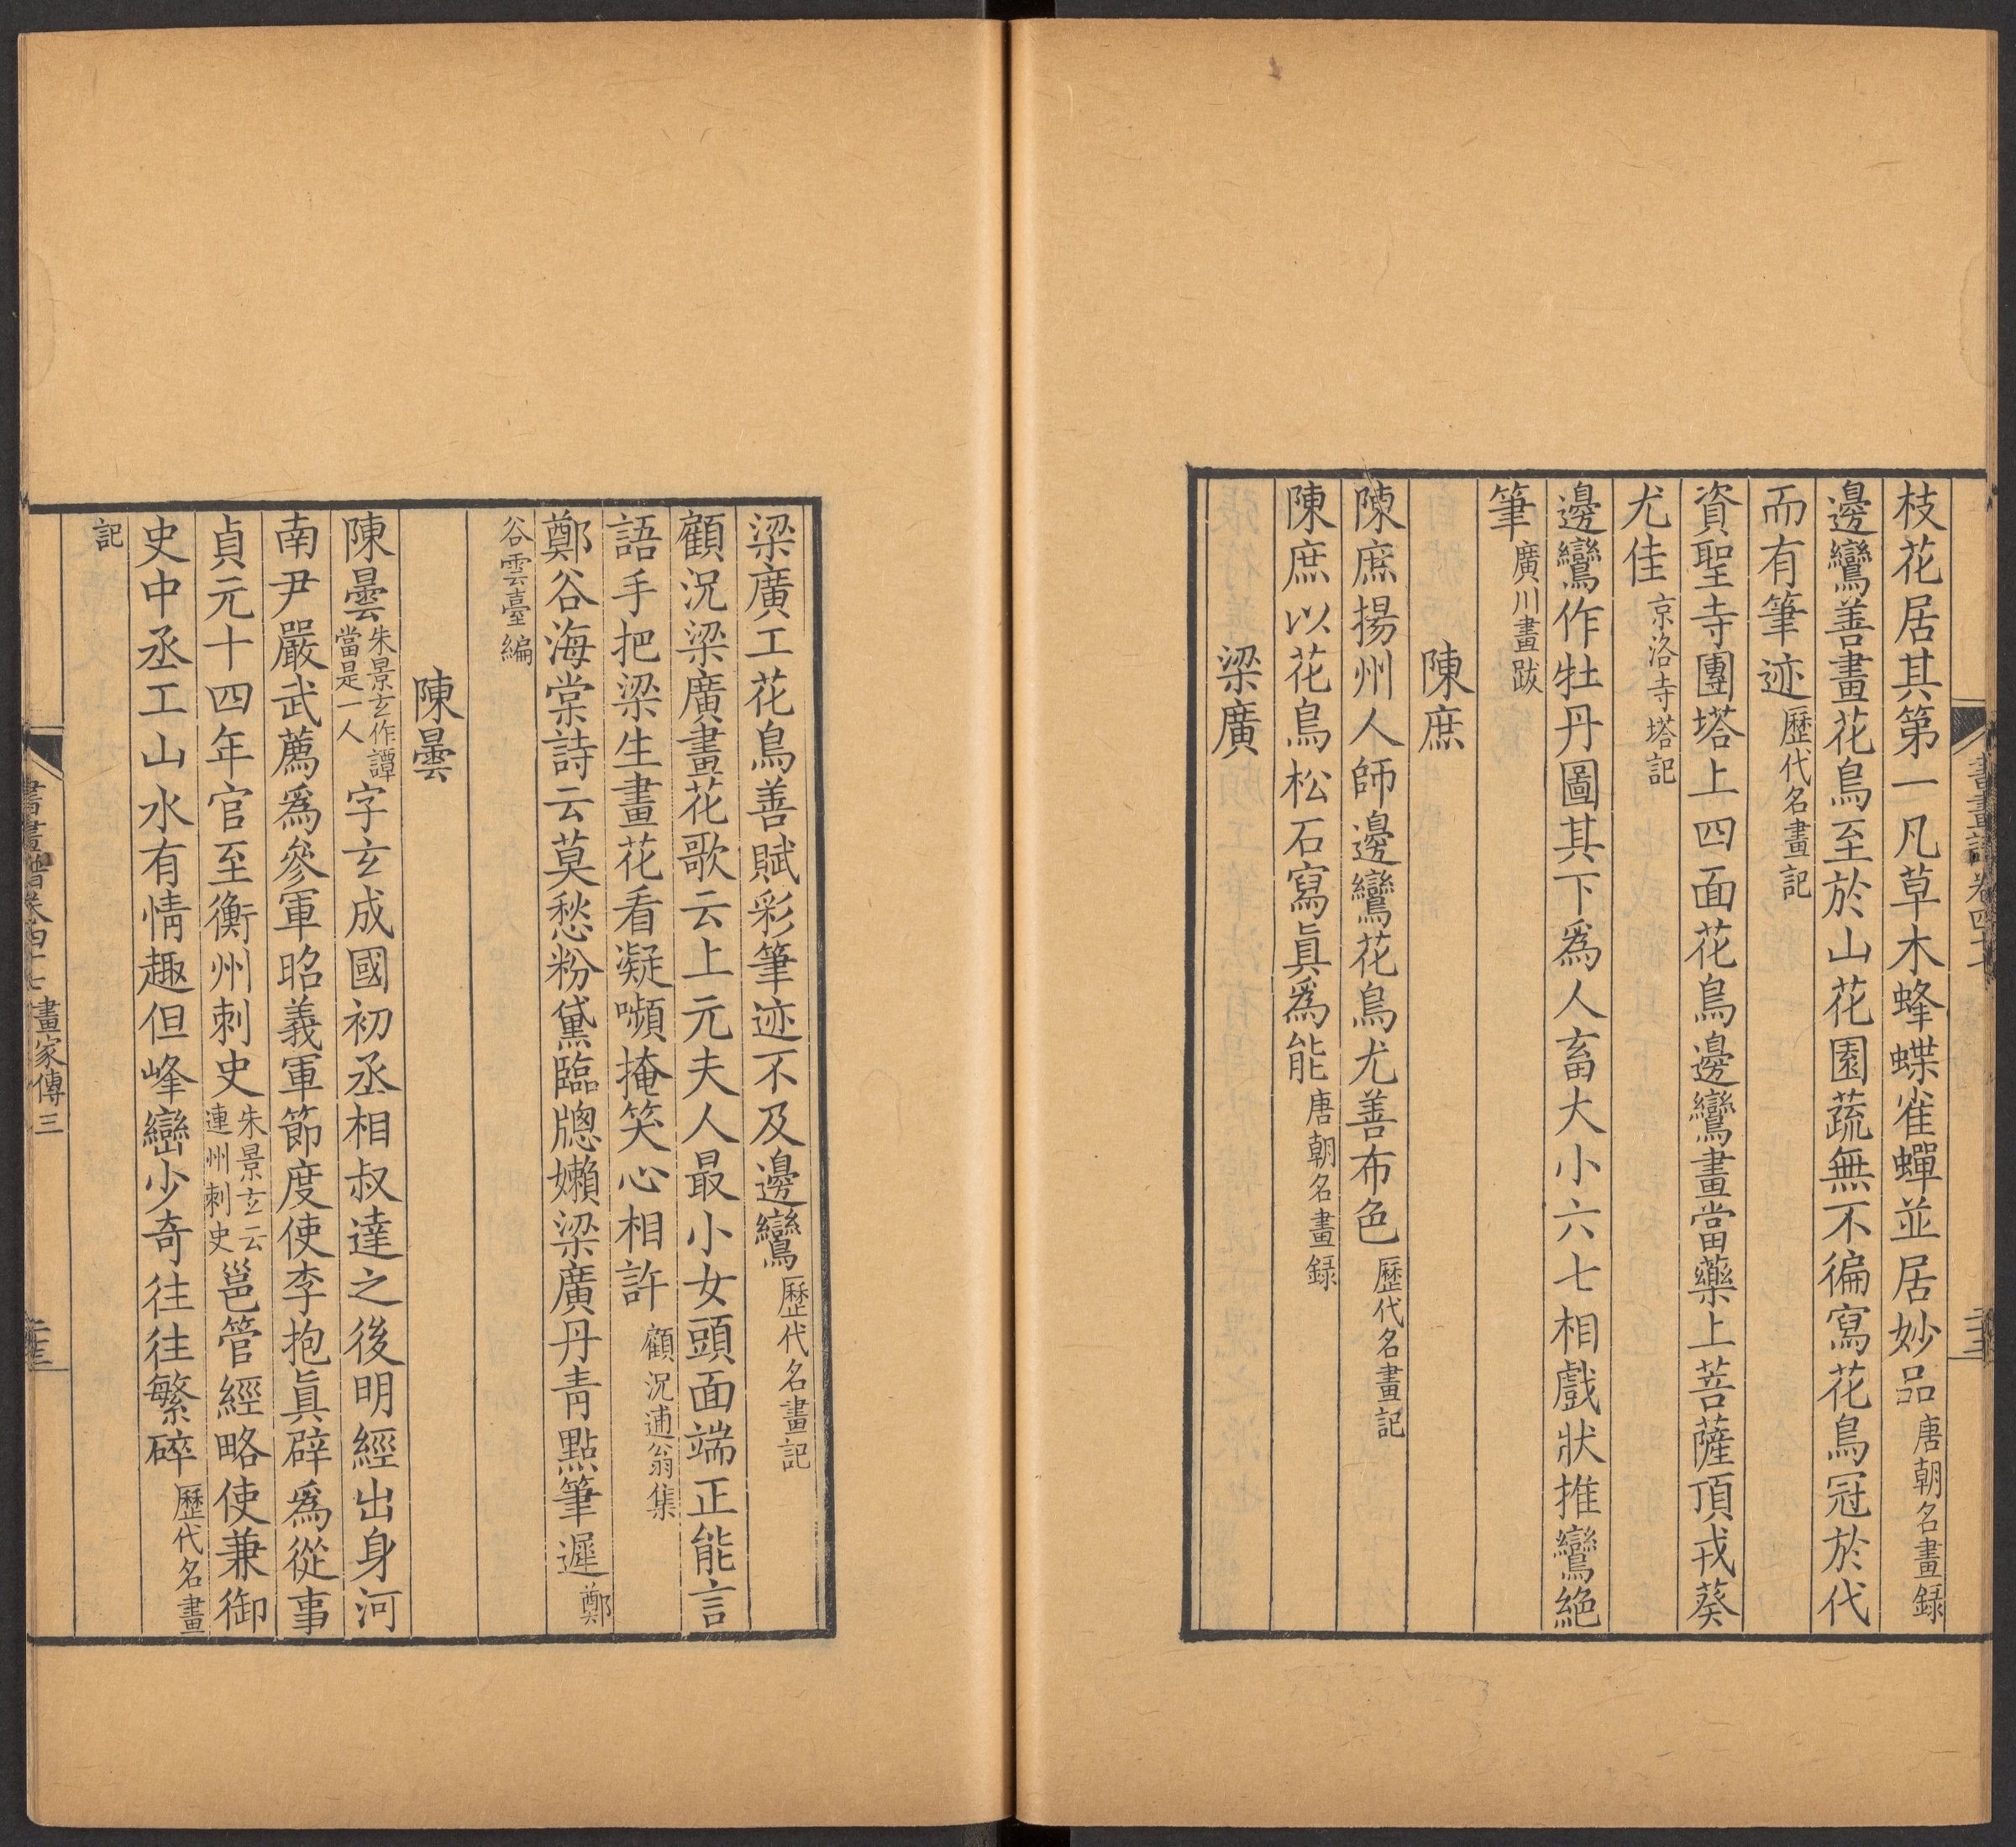 枝花居其第一凡草木蜂蝶雀蟬並居妙品唐朝名畫録
邊鸞善畫花鳥至於山花園蔬無不徧寫花鳥冠於代
而有筆迹歷代名畫記
資聖寺團塔上四面花鳥邊鸞畫當藥上菩薩頂戎葵
尤佳京洛寺塔記
邊鸞作牡丹圖其下爲人畜大小六七相戲狀推鸞絶
筆廣川畫跋
陳庶
陳庶揚州人師邊鸞花鳥尤善布色歷代名畫記
陳庶以花鳥松石寫眞爲能唐朝名畫録
梁廣
梁廣工花鳥善賦彩筆迹不及邊鸞歷代名畫記
顧況梁廣畫花歌云上元夫人最小女頭面端正能言
語手把梁生畫花看凝嚬掩笑心相許顧況逋翁集
鄭谷海棠詩云莫愁粉黛臨牕嬾梁廣丹靑點筆遲鄭
谷雲臺編
陳曇
陳曇朱景玄作譚當是一人字玄成國初丞相叔達之後明經出身河
南尹嚴武薦爲參軍昭義軍節度使李抱眞辟爲從事
貞元十四年官至衡州刺史朱景玄云連州刺史邕管經略使兼御
史中丞工山水有情趣但峰巒少奇往往繁碎歷代名畫
記
書畫譜卷四十七 畫家傳三